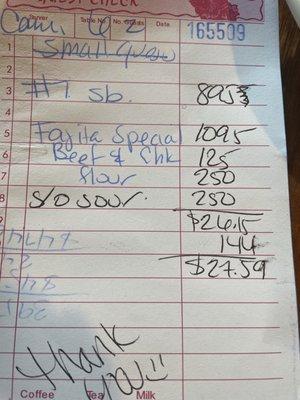 GUEST CHECK
Server Table No. No. Guests Date
Cami 6 2 165509
1 Small queso
2
3 #7 sb. 895
4
5 Fajita Special 1095
6 Beef & Chk 125
7 flour 250
8 s/o sour. 250
$26.15
144
$27.59
Thank
You!!
Coffee Tea Milk